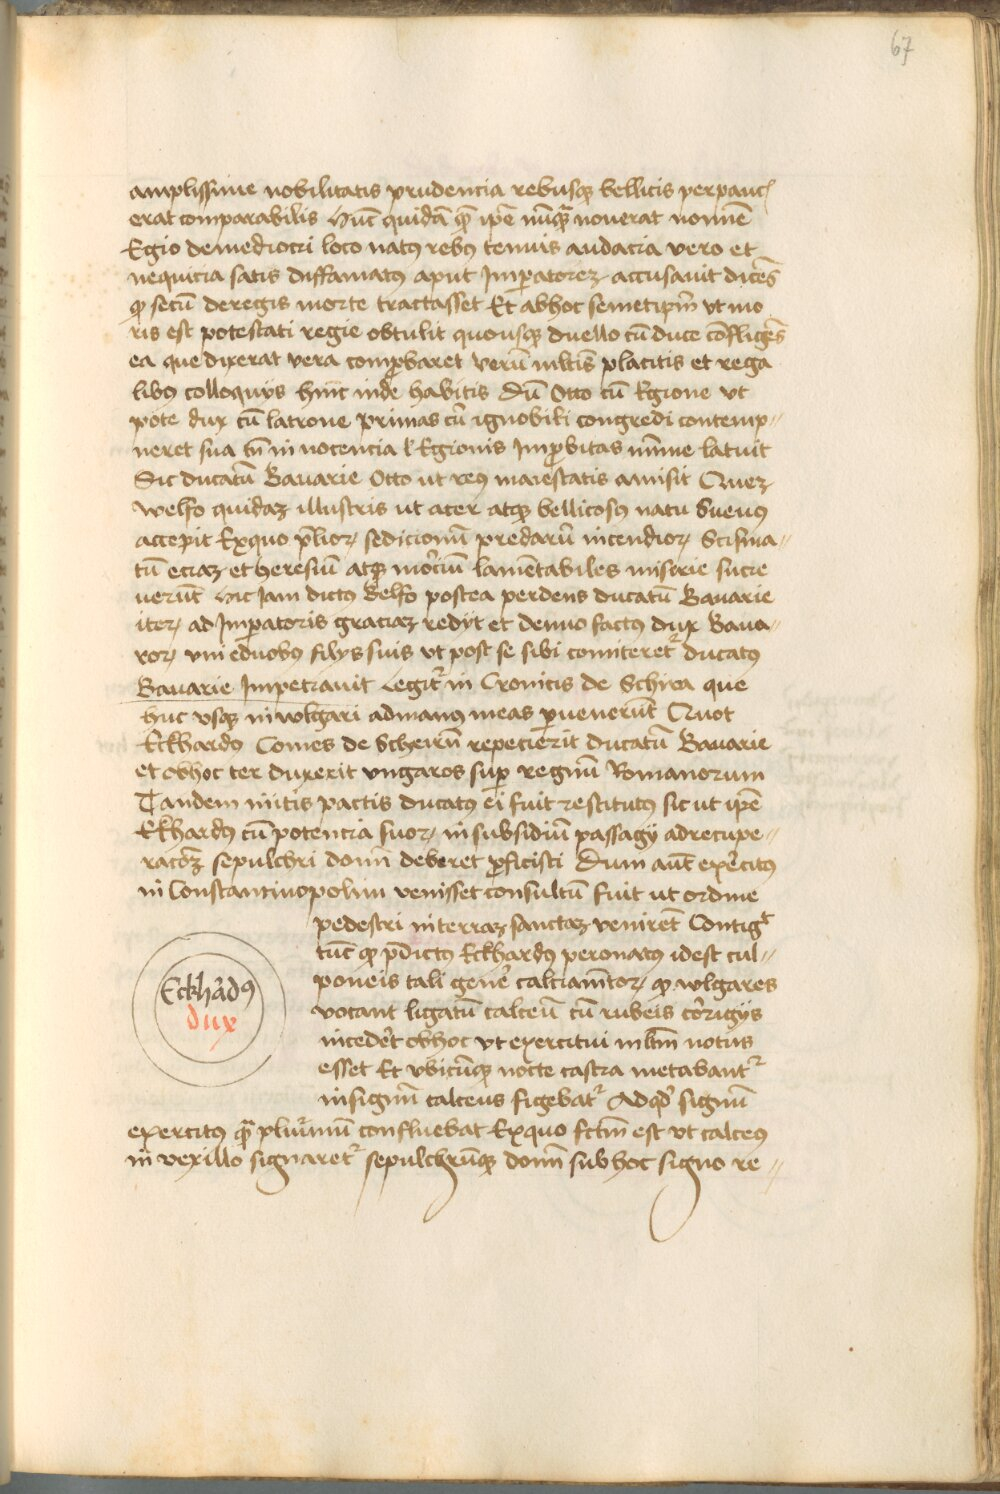 67
amplissime nobilitatis prudencia rebusqꝫ bellicis perpauc̄
erat comparabilis Hūc quidā quē ipē nūꝙ̄ noverat nomīe
Egio demediocri loco natꝰ rebꝰ tenuis audacia vero et
nequicia satis diffamatꝰ aput Imꝑatoreꝫ accusavit dicēs
ꝙ secū deregis morte tractasset Et abhoc semetipm̄ vt mo
ris est potestati regie obtulit quousqꝫ duello cū duce cōfligēs
ea que dixerat vera comꝓbaret verū mltis placitis et rega
libꝰ colloquijs hinc inde habitis Dū Otto cū Egione vt
pote dux cū latrone primas cū ignobili congredi contemp〃
neret sua tn̄ in nocencia l Egionis Imꝓbitas mīme latuit
Sic ducatū Bavarie Otto ut reꝰ maiestatis amisit Queꝫ
welfo quidaꝫ illustris ut acer atqꝫ bellicosꝰ natu Suevꝰ
accepit Exquo p̄lioꝝ sedicionū predarū incendioꝝ Scisma〃
tū eciaꝫ et heresiū atqꝫ morciū lamētabiles miserie succre
verūt Hic Iam dictꝰ Belfo postea perdens ducatū Bavarie
iteꝝ ad Imꝑatoris graciaꝫ redijt et denuo factꝰ dux Bava〃
roꝝ vni eduobꝰ filijs suis vt post se sibi comiteret̉ ducatꝰ
Bavarie Impetravit Legit̉ in Cronicis de Schira que
huc vsqꝫ in wlgari admanꝰ meas ꝑvenerūt Quot
Eckhardꝰ Comes de Scheirn̄ repecierit ducatū Bavarie
et obhoc ter duxerit vngaros suꝑ regnū Romanorum
Tandem initis pactis ducatꝰ ei fuit restitutꝰ sic ut ipē
Ekhardꝰ cū potencia suoꝝ in subsidiū passagij adrecupe〃
racōꝫ sepulchri domī deberet ꝓficisci Dum aūt exercitꝰ
in Constantinopolim venisset consultū fuit ut ordine
pedestri in terraꝫ sanctaꝫ venirēt Contigt
tūc ꝙ p̄dictꝰ Eckhardꝰ peronatꝰ idest cul〃
poneis tali genēr calciamtoꝝ ꝙ wlgares
vocant ligatū calceū cū rubeis corigijs
incedēt obhoc vt exercitui mltm̄ notus
esset Et vbicūqꝫ nocte castra metabant̉
insignū calceus figebat̉ Adqd̄ signū
exercitꝰ ꝙ̄ plurimū confluebat Exquo fctm̄ est vt calceꝰ
in vexillo signaret̉ sepulchrūqꝫ domī subhoc signo re〃
Eckhādꝰ
dux